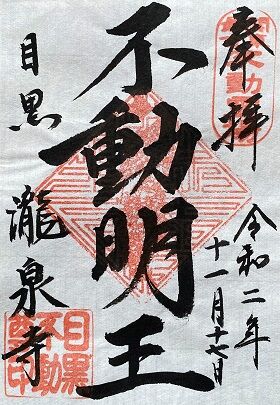 奉拝
令和二年
十一月十七日
不動明王
目黒
瀧泉寺
目黒
不動